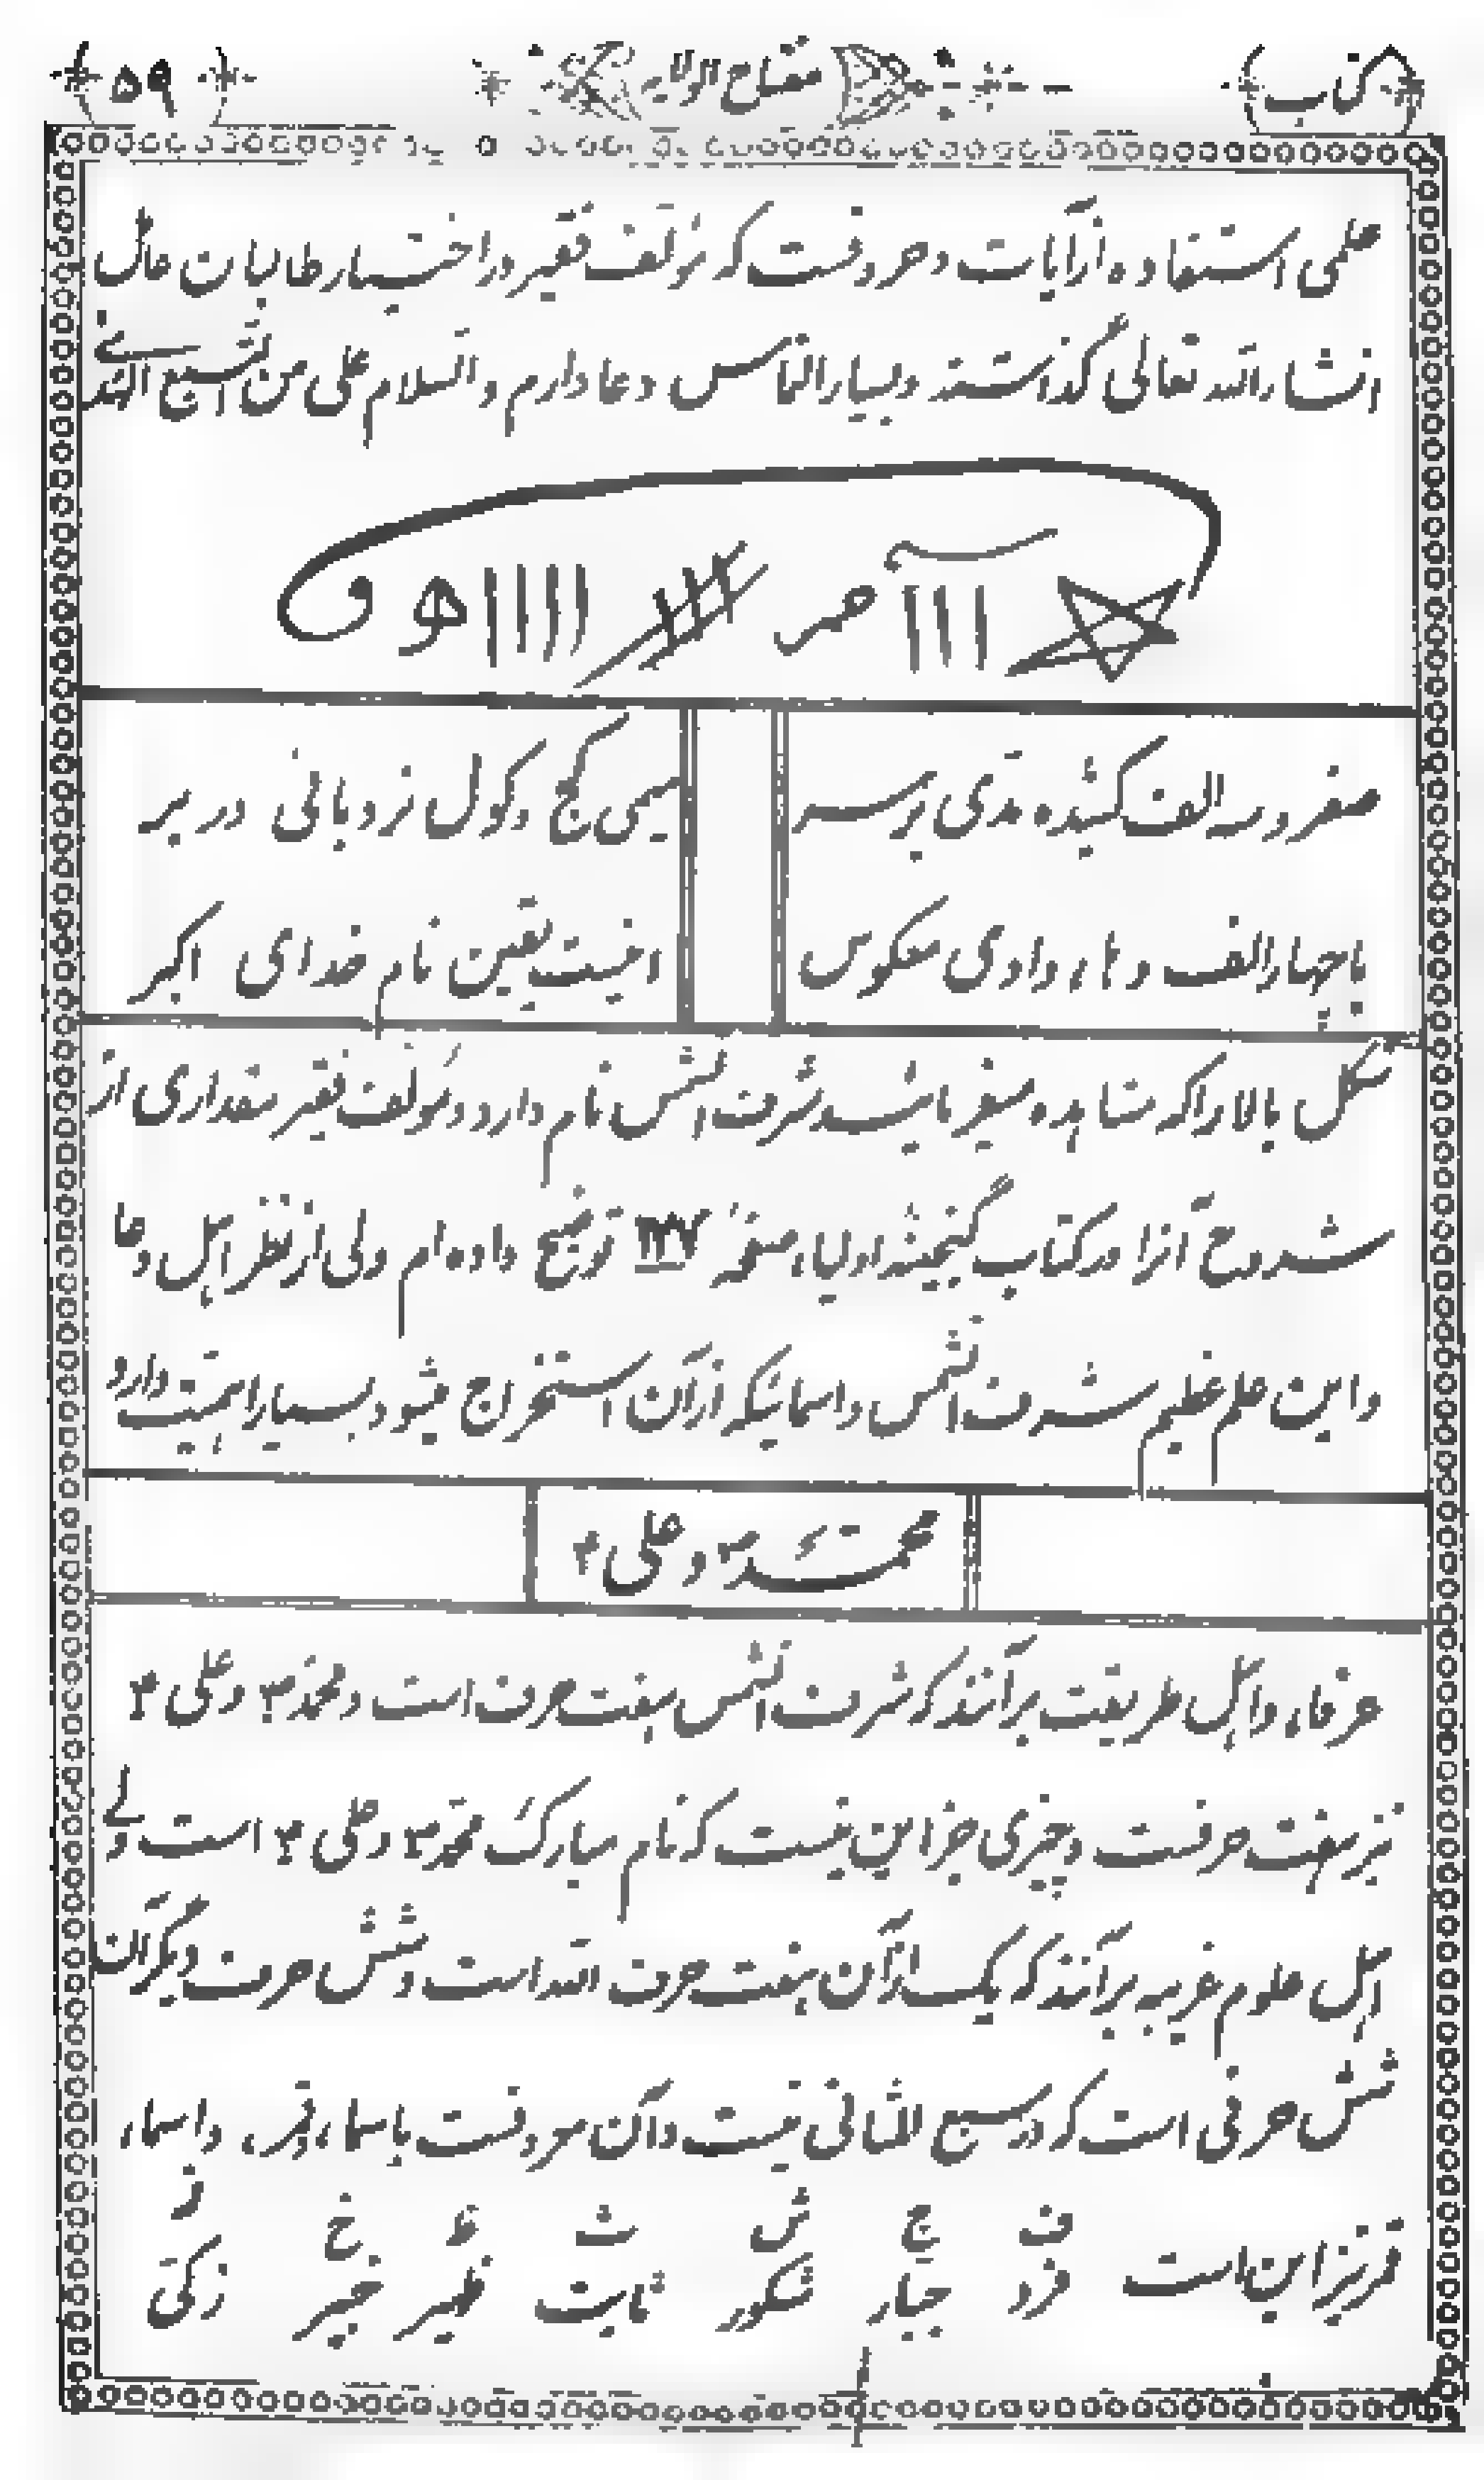 کتاب مفتاح الولایه ۵۹
علمی استفاده از آیات و حروفست که مؤلف فقیر در اختیار طالبان عامل
انشاءالله تعالی گذاشته و بسیار التماس دعا دارم والسلام علی من اتبع الهدی
صفر و سه الف کشیده مدی بر سر
میمی کج و کول نردبانی در بر
با چهار الف و هاء و واوی معکوس
اینست یقین نام خدای اکبر
شکل بالا را که مشاهده میفرمائید شرف الشمس نام دارد و مؤلف فقیر مقداری از
شروح آنرا در کتاب گنجینه اولیاء صفحهٔ ۱۳۷ توضیح داده‌ام ولی از نظر اهل دعا
و این علم عظیم شرف الشمس و اسمائیکه از آن استخراج میشود بسیار اهمیت دارد
محمد ص و علی ع
عرفاء و اهل طریقت برآنند که شرف الشمس هفت حرف است و محمد ص و علی ع
نیز هفت حرفست و چیزی جز این نیست که نام مبارک محمد ص و علی ع است ولی
اهل علوم غریبه برآنند که یک از آن هفت حرف الله است و شش حرف دیگر آن
شش حرفی است که در سبع المثانی نیست و آن معروفست باسماء قمر، و اسماء
قمر نیز این است ف ج ش ث ظ خ ز
فرد جبار شکور ثابت ظهیر خبیر زکی